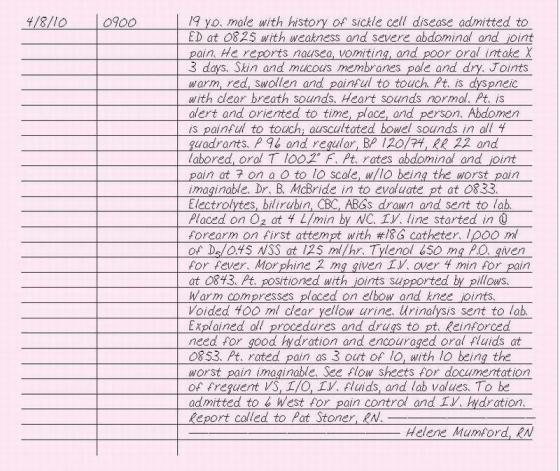 4/8/10 0900 19 y.o. male with history of sickle cell disease admitted to
ED at 0825 with weakness and severe abdominal and joint
pain. He reports nausea, vomiting, and poor oral intake X
3 days. Skin and mucous membranes pale and dry. Joints
warm, red, swollen and painful to touch. Pt. is dyspneic
with clear breath sounds. Heart sounds normal. Pt. is
alert and oriented to time, place, and person. Abdomen
is painful to touch; auscultated bowel sounds in all 4
quadrants. P 96 and regular, BP 120/74, RR 22 and
labored, oral T 100.2° F. Pt. rates abdominal and joint
pain at 7 on a 0 to 10 scale, w/10 being the worst pain
imaginable. Dr. B. McBride in to evaluate pt at 0833.
Electrolytes, bilirubin, CBC, ABGs drawn and sent to lab.
Placed on O₂ at 4 L/min by NC. I.V. line started in
forearm on first attempt with #18G catheter. 1,000 ml
of D₅/0.45 NSS at 125 ml/hr. Tylenol 650 mg P.O. given
for fever. Morphine 2 mg given I.V. over 4 min for pain
at 0843. Pt. positioned with joints supported by pillows.
Warm compresses placed on elbow and knee joints.
Voided 400 ml clear yellow urine. Urinalysis sent to lab.
Explained all procedures and drugs to pt. Reinforced
need for good hydration and encouraged oral fluids at
0853. Pt. rated pain as 3 out of 10, with 10 being the
worst pain imaginable. See flow sheets for documentation
of frequent VS, I/O, I.V. fluids, and lab values. To be
admitted to 6 West for pain control and I.V. hydration.
Report called to Pat Stoner, RN.
Helene Mumford, RN